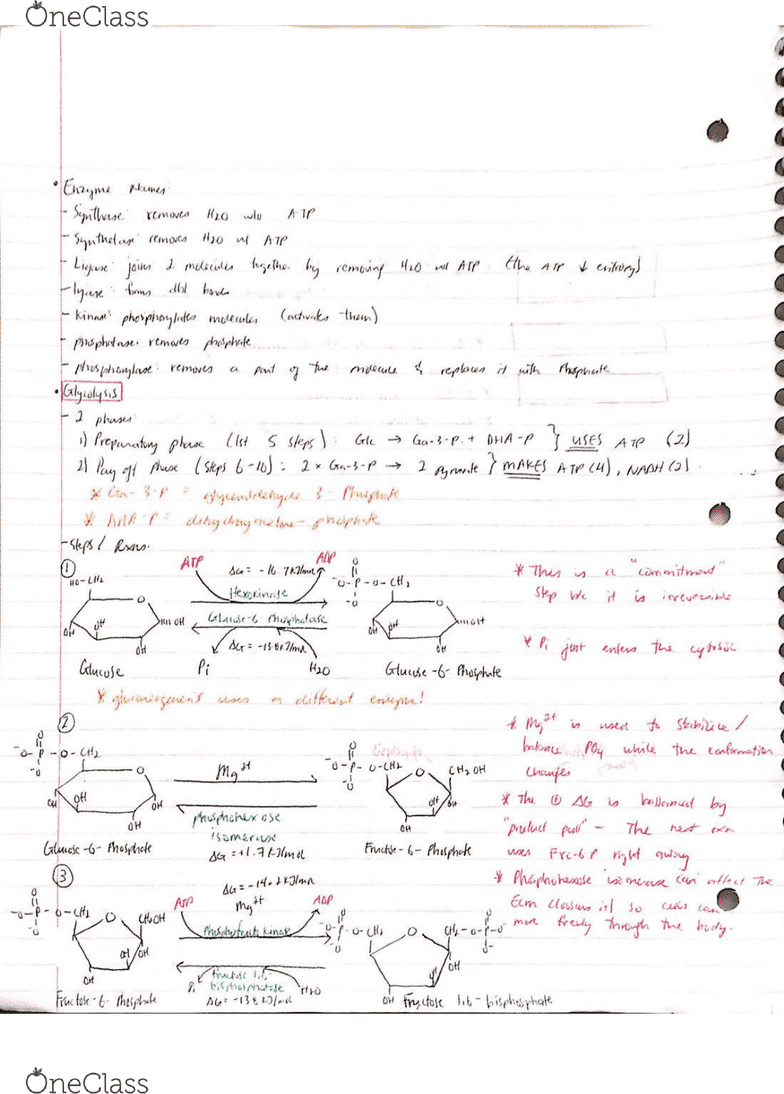 OneClass
• Enzyme Names:
- Synthase: removes H2O w/o ATP
- Synthetase: removes H2O w/ ATP
- Ligase: joins 2 molecules together by removing H2O w/ ATP (the ATP ↓ entropy)
- lyase: forms dbl bonds
- Kinase: phosphorylates molecules (activates them)
- phosphatase: removes phosphate
- phosphorylase: removes a part of the molecule & replaces it with Phosphate
• Glycolysis
- 2 phases:
1) Preparatory phase (1st 5 steps): Glc → Ga-3-P + DHA-P } USES ATP (2)
2) Pay off Phase (Steps 6-10): 2 x Ga-3-P → 2 pyruvate } MAKES ATP (4), NADH (2)
* Ga-3-P = glyceraldehyde 3-Phosphate
* DHA-P = dihydroxyacetone-phosphate
- Steps / Rxns:
①
ATP ΔG = -16.7 kJ/mol ADP
HO-CH2
Hexokinase
-O-P-O-CH2
O
O
OH OH OH OH
Glucose-6-Phosphatase
ΔG = -13.8 kJ/mol
Glucose Pi H2O Glucose-6-Phosphate
* This is a "commitment"
step b/c it is irreversible
* Pi just enters the cytosol
* gluconeogenesis uses a different enzyme!
②
-O-P-O-CH2
Mg2+
-O-P-O-CH2 CH2OH
phosphohexose
isomerase
ΔG = +1.7 kJ/mol
Glucose-6-Phosphate Fructose-6-Phosphate
* Mg2+ is used to stabilize /
balance PO4 while the conformation
changes
* The ⊕ ΔG is ballanced by
"product pull" - The next rxn
uses Frc-6P right away
* Phosphohexose isomerase can affect the
Ecm so cells can
move freely through the body.
③
ΔG = -14.2 kJ/mol
ATP Mg2+ ADP
-O-P-O-CH2 CH2OH
-O-P-O-CH2 CH2-O-P-O-
fructose 1,6-
bisphosphatase
Pi H2O
ΔG = -13.8 kJ/mol
Fructose-6-Phosphate Fructose 1,6-bisphosphate
OneClass